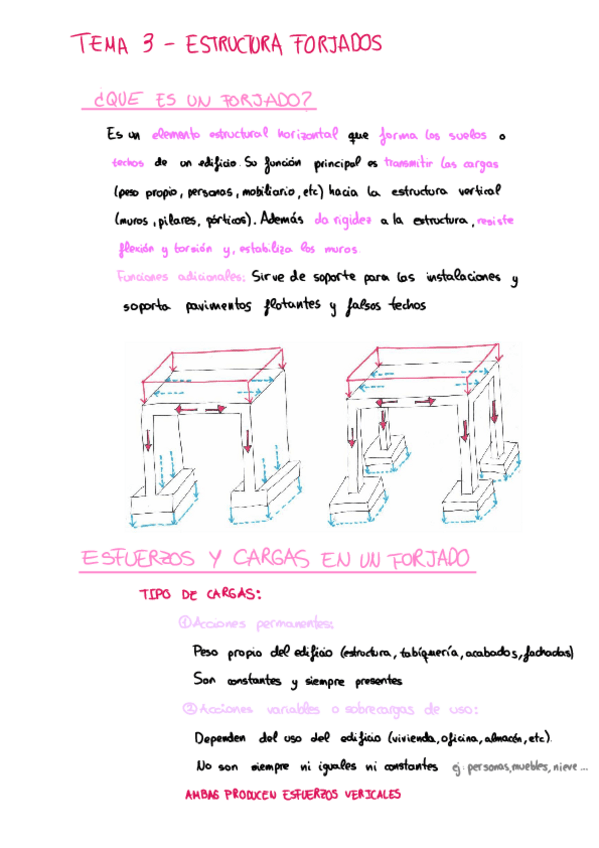 TEMA 3 - ESTRUCTURA FORJADOS
¿QUE ES UN FORJADO?
Es un elemento estructural horizontal que forma los suelos o
techos de un edificio. Su función principal es transmitir las cargas
(peso propio, personas, mobiliario, etc) hacia la estructura vertical
(muros, pilares, pórticos). Además da rigidez a la estructura, resiste
flexión y torsión y, estabiliza los muros.
Funciones adicionales: Sirve de soporte para las instalaciones y
soporta pavimentos flotantes y falsos techos
ESFUERZOS Y CARGAS EN UN FORJADO
TIPO DE CARGAS:
①Acciones permanentes:
Peso propio del edificio (estructura, tabiquería, acabados, fachadas)
Son constantes y siempre presentes
②Acciones variables o sobrecargas de uso:
Dependen del uso del edificio (vivienda, oficina, almacén, etc).
No son siempre ni iguales ni constantes ej: personas, muebles, nieve...
AMBAS PRODUCEN ESFUERZOS VERICALES